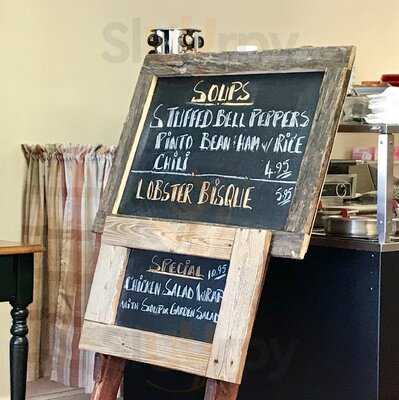 Sluurpy
SOUPS
STUFFED BELL PEPPERS
PINTO BEAN & HAM w/ RICE
CHILI 4.95
LOBSTER BISQUE 5.95
SPECIAL 10.95
CHICKEN SALAD WRAP
WITH SOUP OR GARDEN SALAD